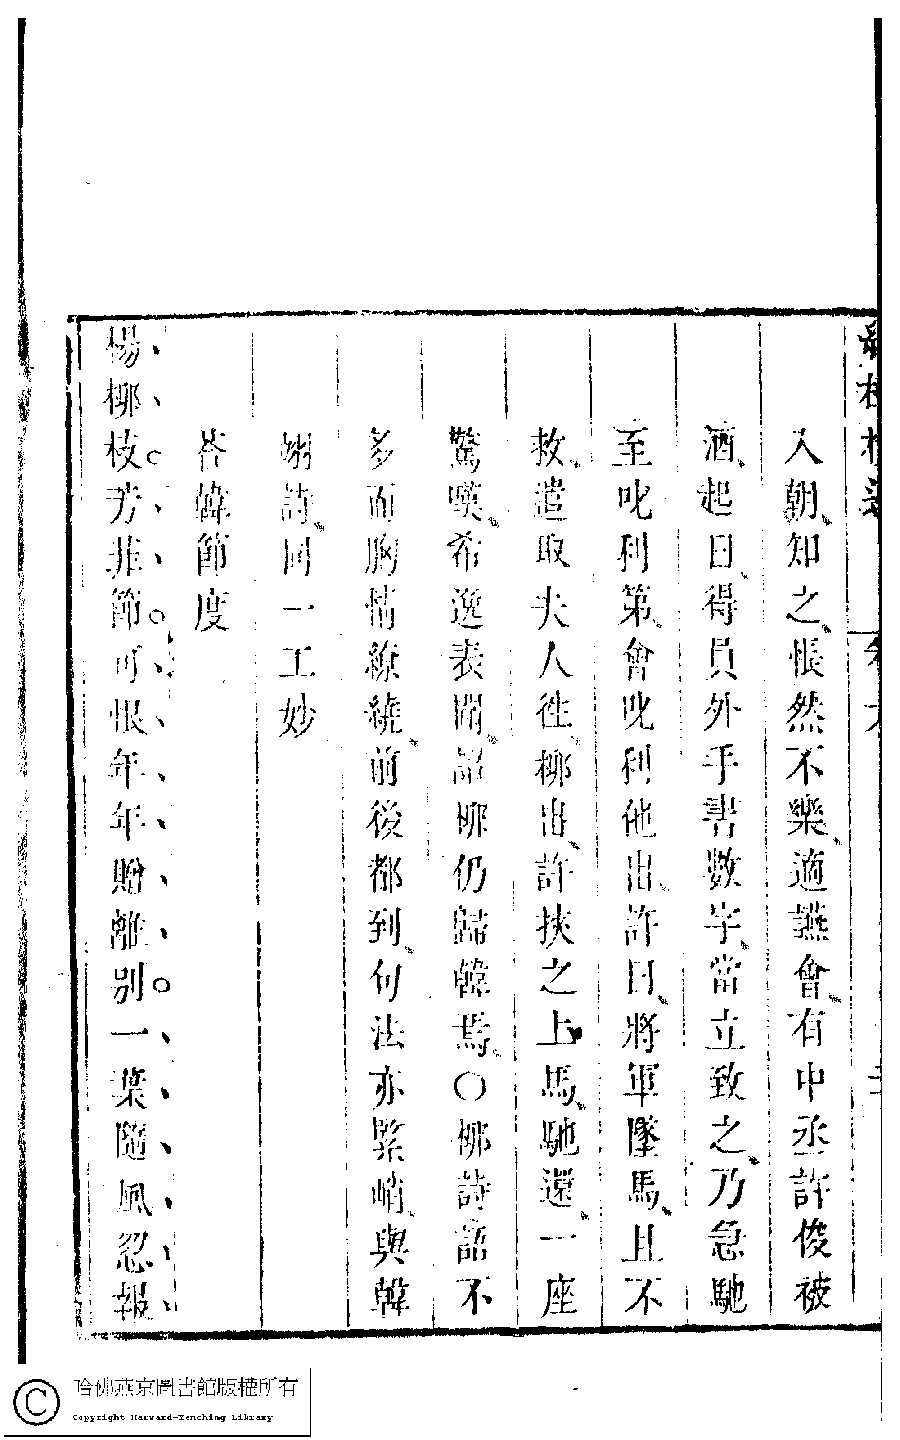 入朝知之悵然不樂適讌會有中丞許俊被
酒起曰得員外手書數字當立致之乃急馳
至叱利第會叱利他出許曰將軍墜馬且不
救遣取夫人徃柳出許挾之上馬馳還一座
驚嘆希逸表聞詔柳仍歸韓焉〇柳詩語不
多而胸情繚繞前後都到句法亦緊峭與韓
翃詩同一工妙
荅韓節度
楊柳枝芳菲節可恨年年贈離別一葉隨風忽報
哈佛燕京圖書館版權所有
Copyright Harvard-Yenching Library